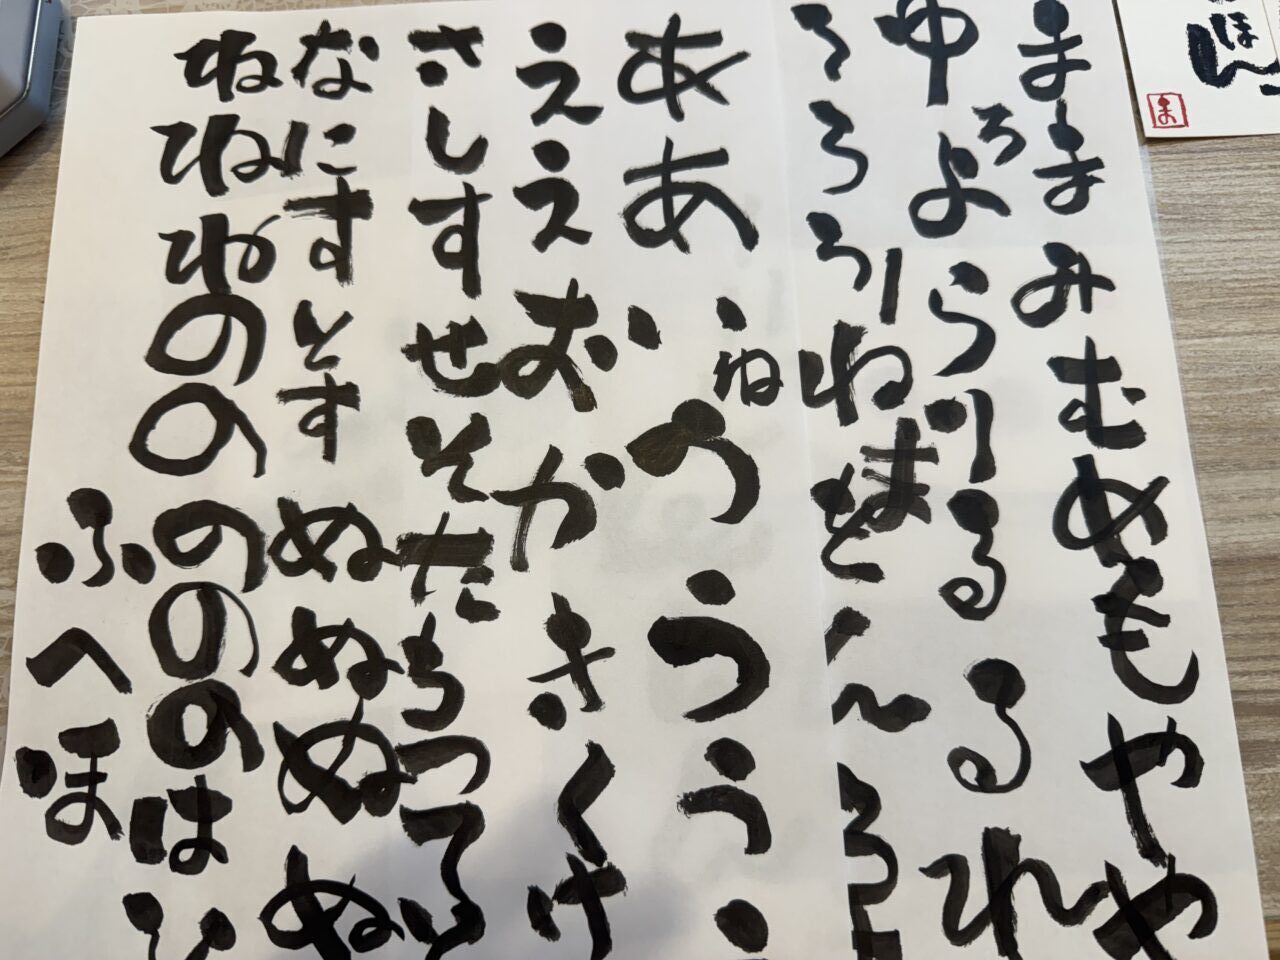 ほん
ま
ままみむめもやや
ゆよらりるるれ
ろ
ろろろりねをんろ
ま
ああ
いね
うううう
ええおかきくけ
さしすせそたちつてる
なにすとすぬぬぬぬ
ねねねのののののはひ
ふへほ